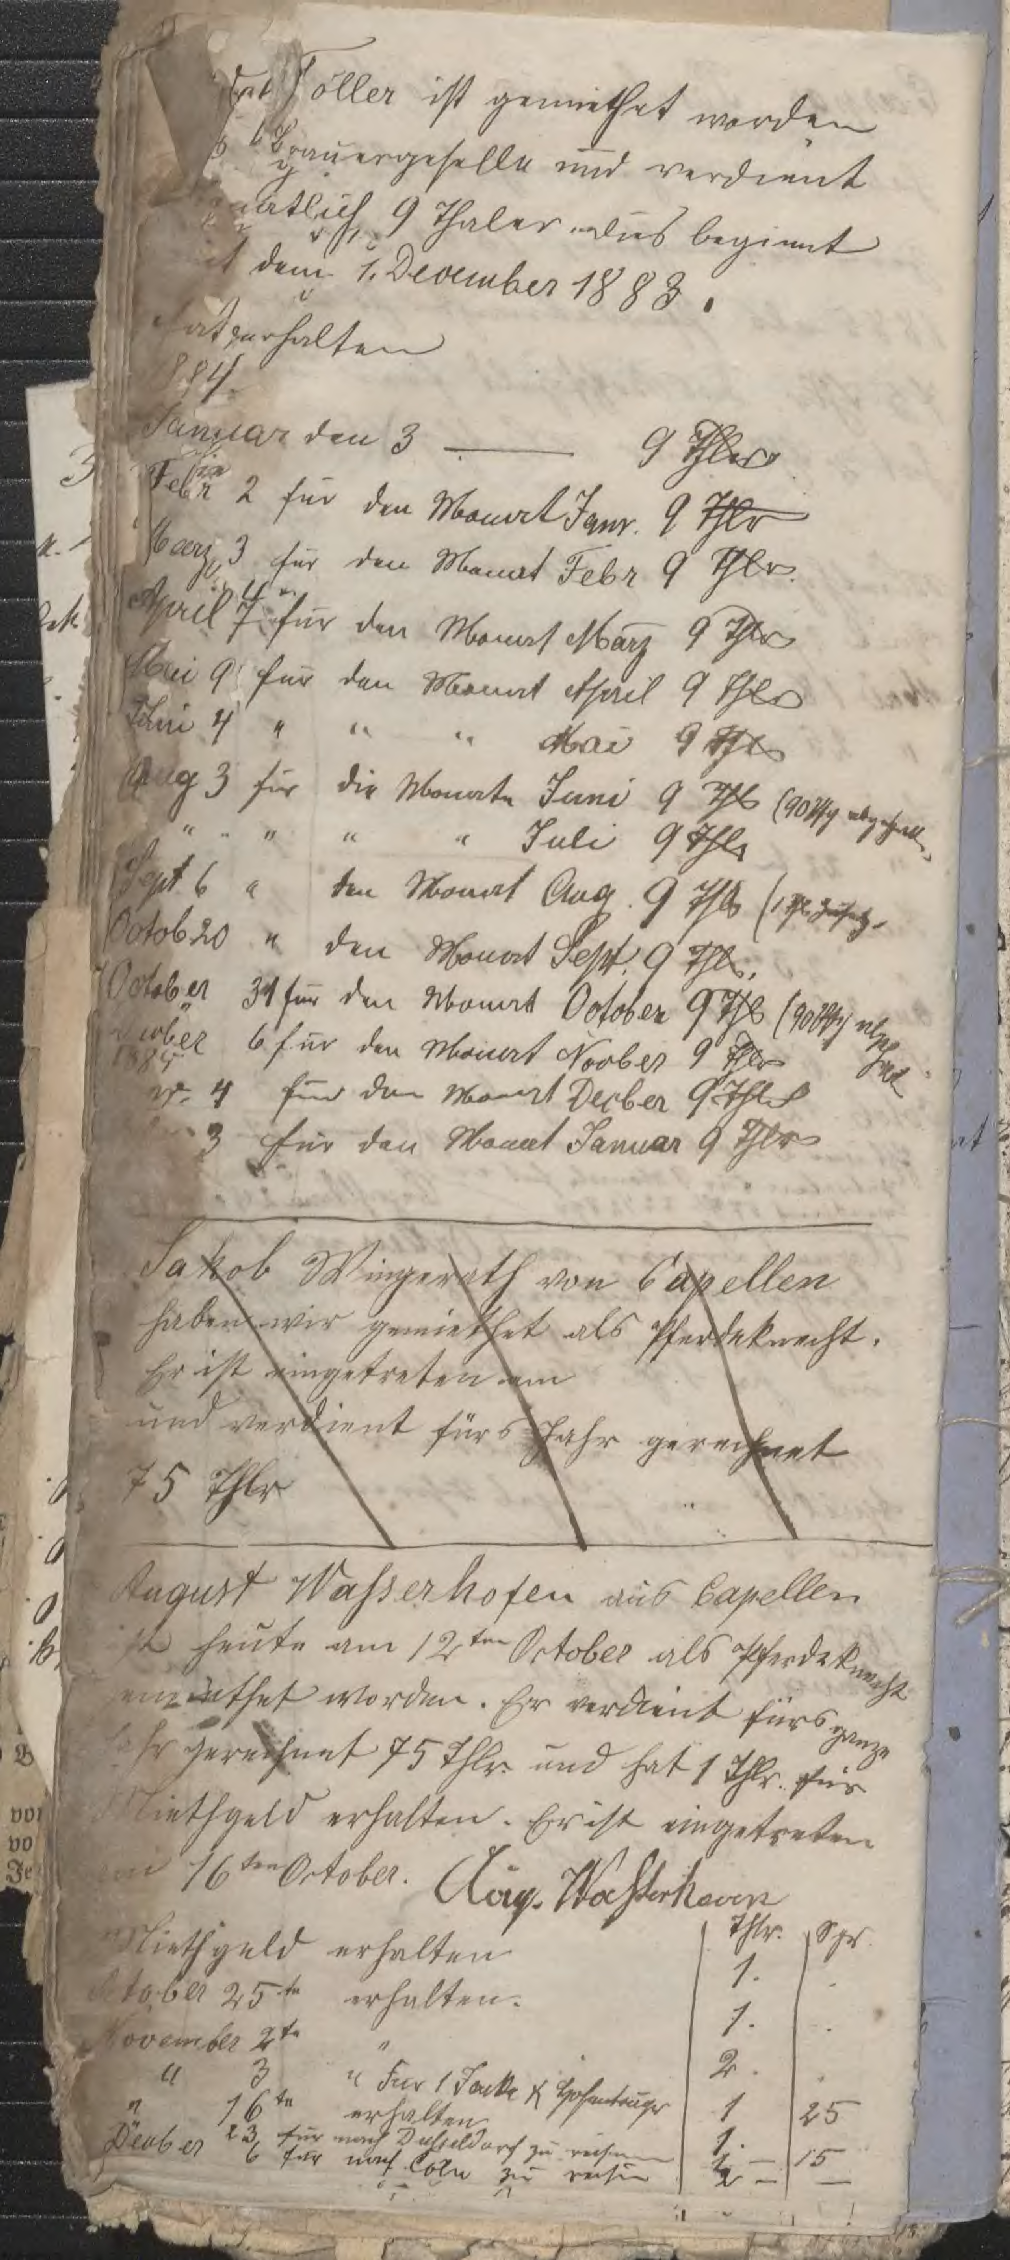 Töller ist gemiethet worden
Brauergeselle und verdient
9 Thaler. dies beginnt
dem 1. December 1883.
erhalten
1884
Januar den 3 — 9 Thlr
Febr 2 für den Monat Janr. 9 Thlr
Marz 3 für den Monat Febr 9 Thlr.
April 7 für den Monat März 9 Thlr
Mai 9 für den Monat April 9 Thlr
Juni 4 " " " Mai 9 Thl
Aug 3 für die Monate Juni 9 Thl (90 Pfg
" " " " Juli 9 Thlr
Sept 6 " den Monat Aug. 9 Thlr (1
Octob 20 " den Monat Sept. 9 Thl.
October 31 für den Monat October 9 Thl (90 Pfg
Decber 6 für den Monat Novber 9 Thlr
1885
4 für den Monat Decber 9 Thlr
3 für den Monat Januar 9 Thlr
Jakob Wingerath von Capellen
haben wir gemiethet als Pferdeknecht.
Er ist eingetreten am
und verdient fürs Jahr gerechnet
75 Thlr
August Wasserhofen aus Capellen
ist heute am 12ten October als Pferdeknecht
gemiethet worden. Er verdient fürs ganze
Jahr gerechnet 75 Thlr. und hat 1 Thlr. für
Miethgeld erhalten. Er ist eingetreten
am 16ten October. Aug. Wasserhoven
Thlr. Sgr.
Miethgeld erhalten 1. .
October 25te erhalten. 1. .
November 2te " 2. .
" 3 " Für 1 Jacke & 1 25
" 16te erhalten 1.
" 23 für nach Dusseldorf zu reisen — 15
Decber 6 für nach Cöln zu reisen 2 — —